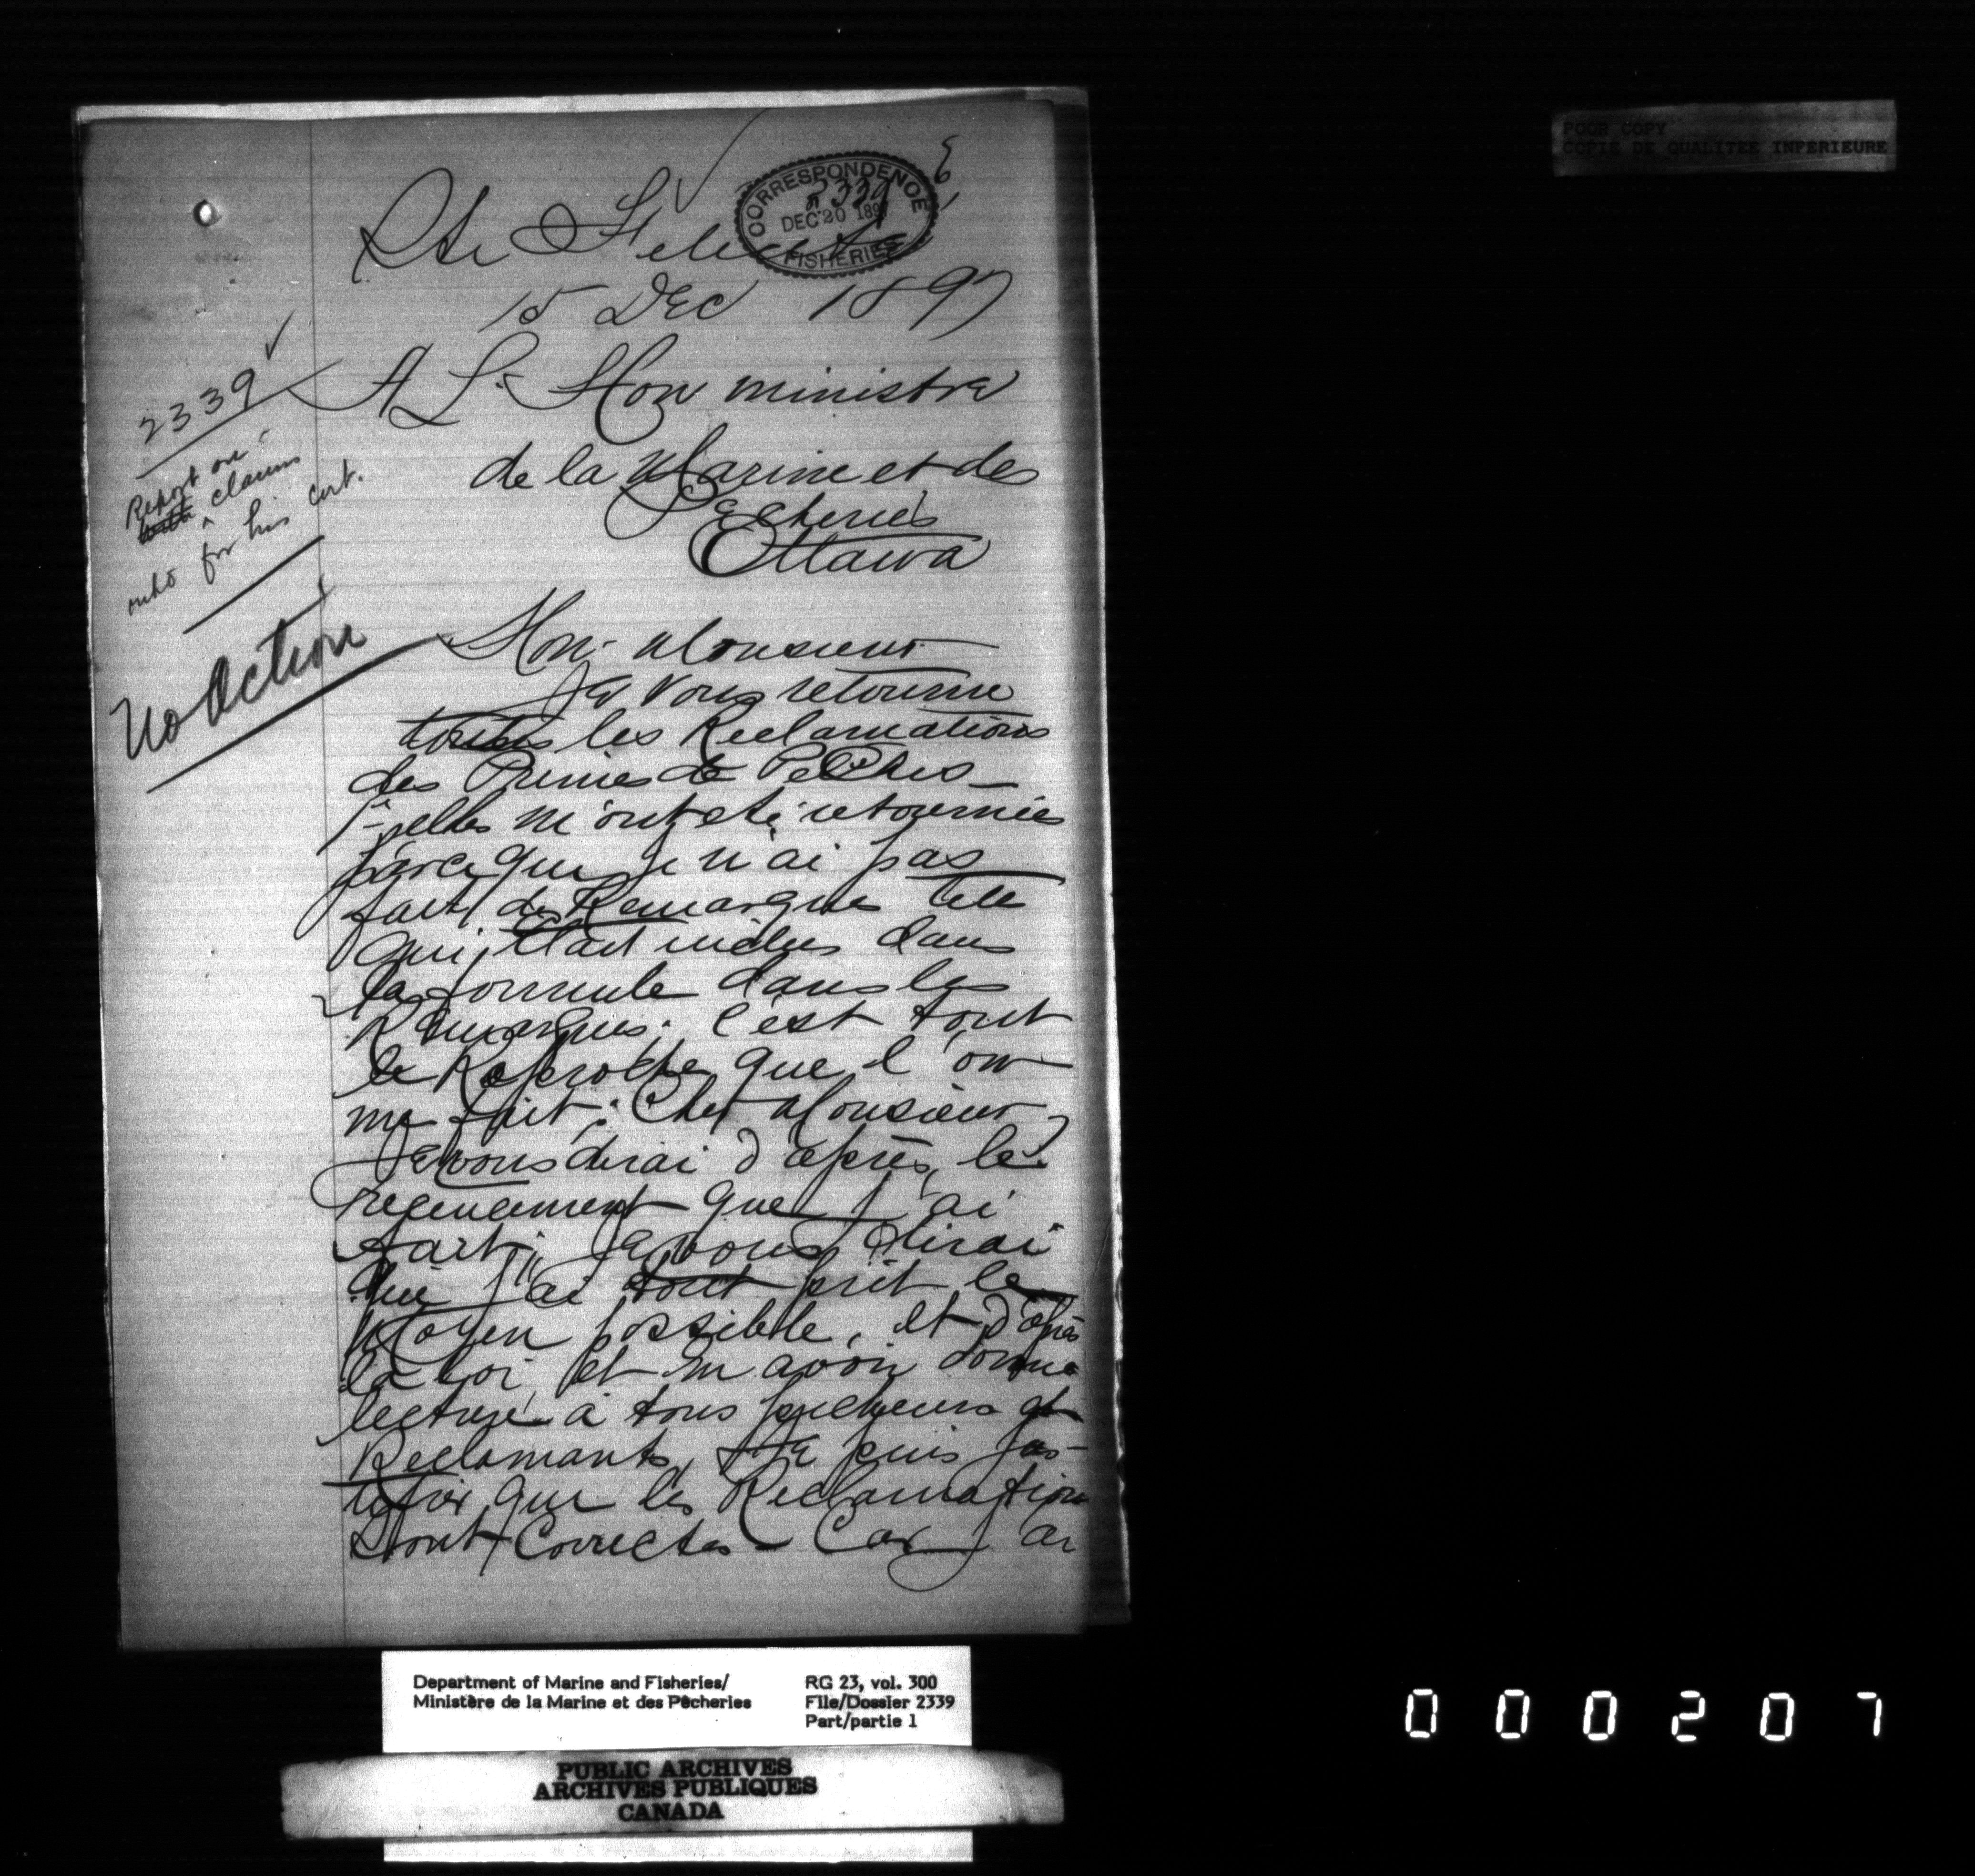 POOR COPY
COPIE DE QUALITEE INFERIEURE
CORRESPONDENCE
2339
DEC 20 189
FISHERIES
Ste Felicité
15 DEC 1897
2339
Report on
claims
for his cert.
No Action
A L. Hon ministre
de la Marine et des
Pecheries
Ottawa
Hon. Monsieur
Je vous retourne
toutes les Reclamations
des Primes de Pêches
elles m'ont été retournées
parce que je n'ai pas
fait des Remarques telle
qui était dans
la formule dans les
Remarques. C'est tout
le Reproche que l'on
me fait. Cher Monsieur
Je vous dirai d'après le
que j'ai
Je vous dirai
que j'ai tout prit le
Moyen possible, et d'après
la loi et m'avoir donné
lecture à tous pecheurs et
Reclamants, Je puis jus-
tifier que les Reclamations
Sont Correctes Car j'ai
Department of Marine and Fisheries/
Ministère de la Marine et des Pêcheries
RG 23, vol. 300
File/Dossier 2339
Part/partie 1
PUBLIC ARCHIVES
ARCHIVES PUBLIQUES
CANADA
000207